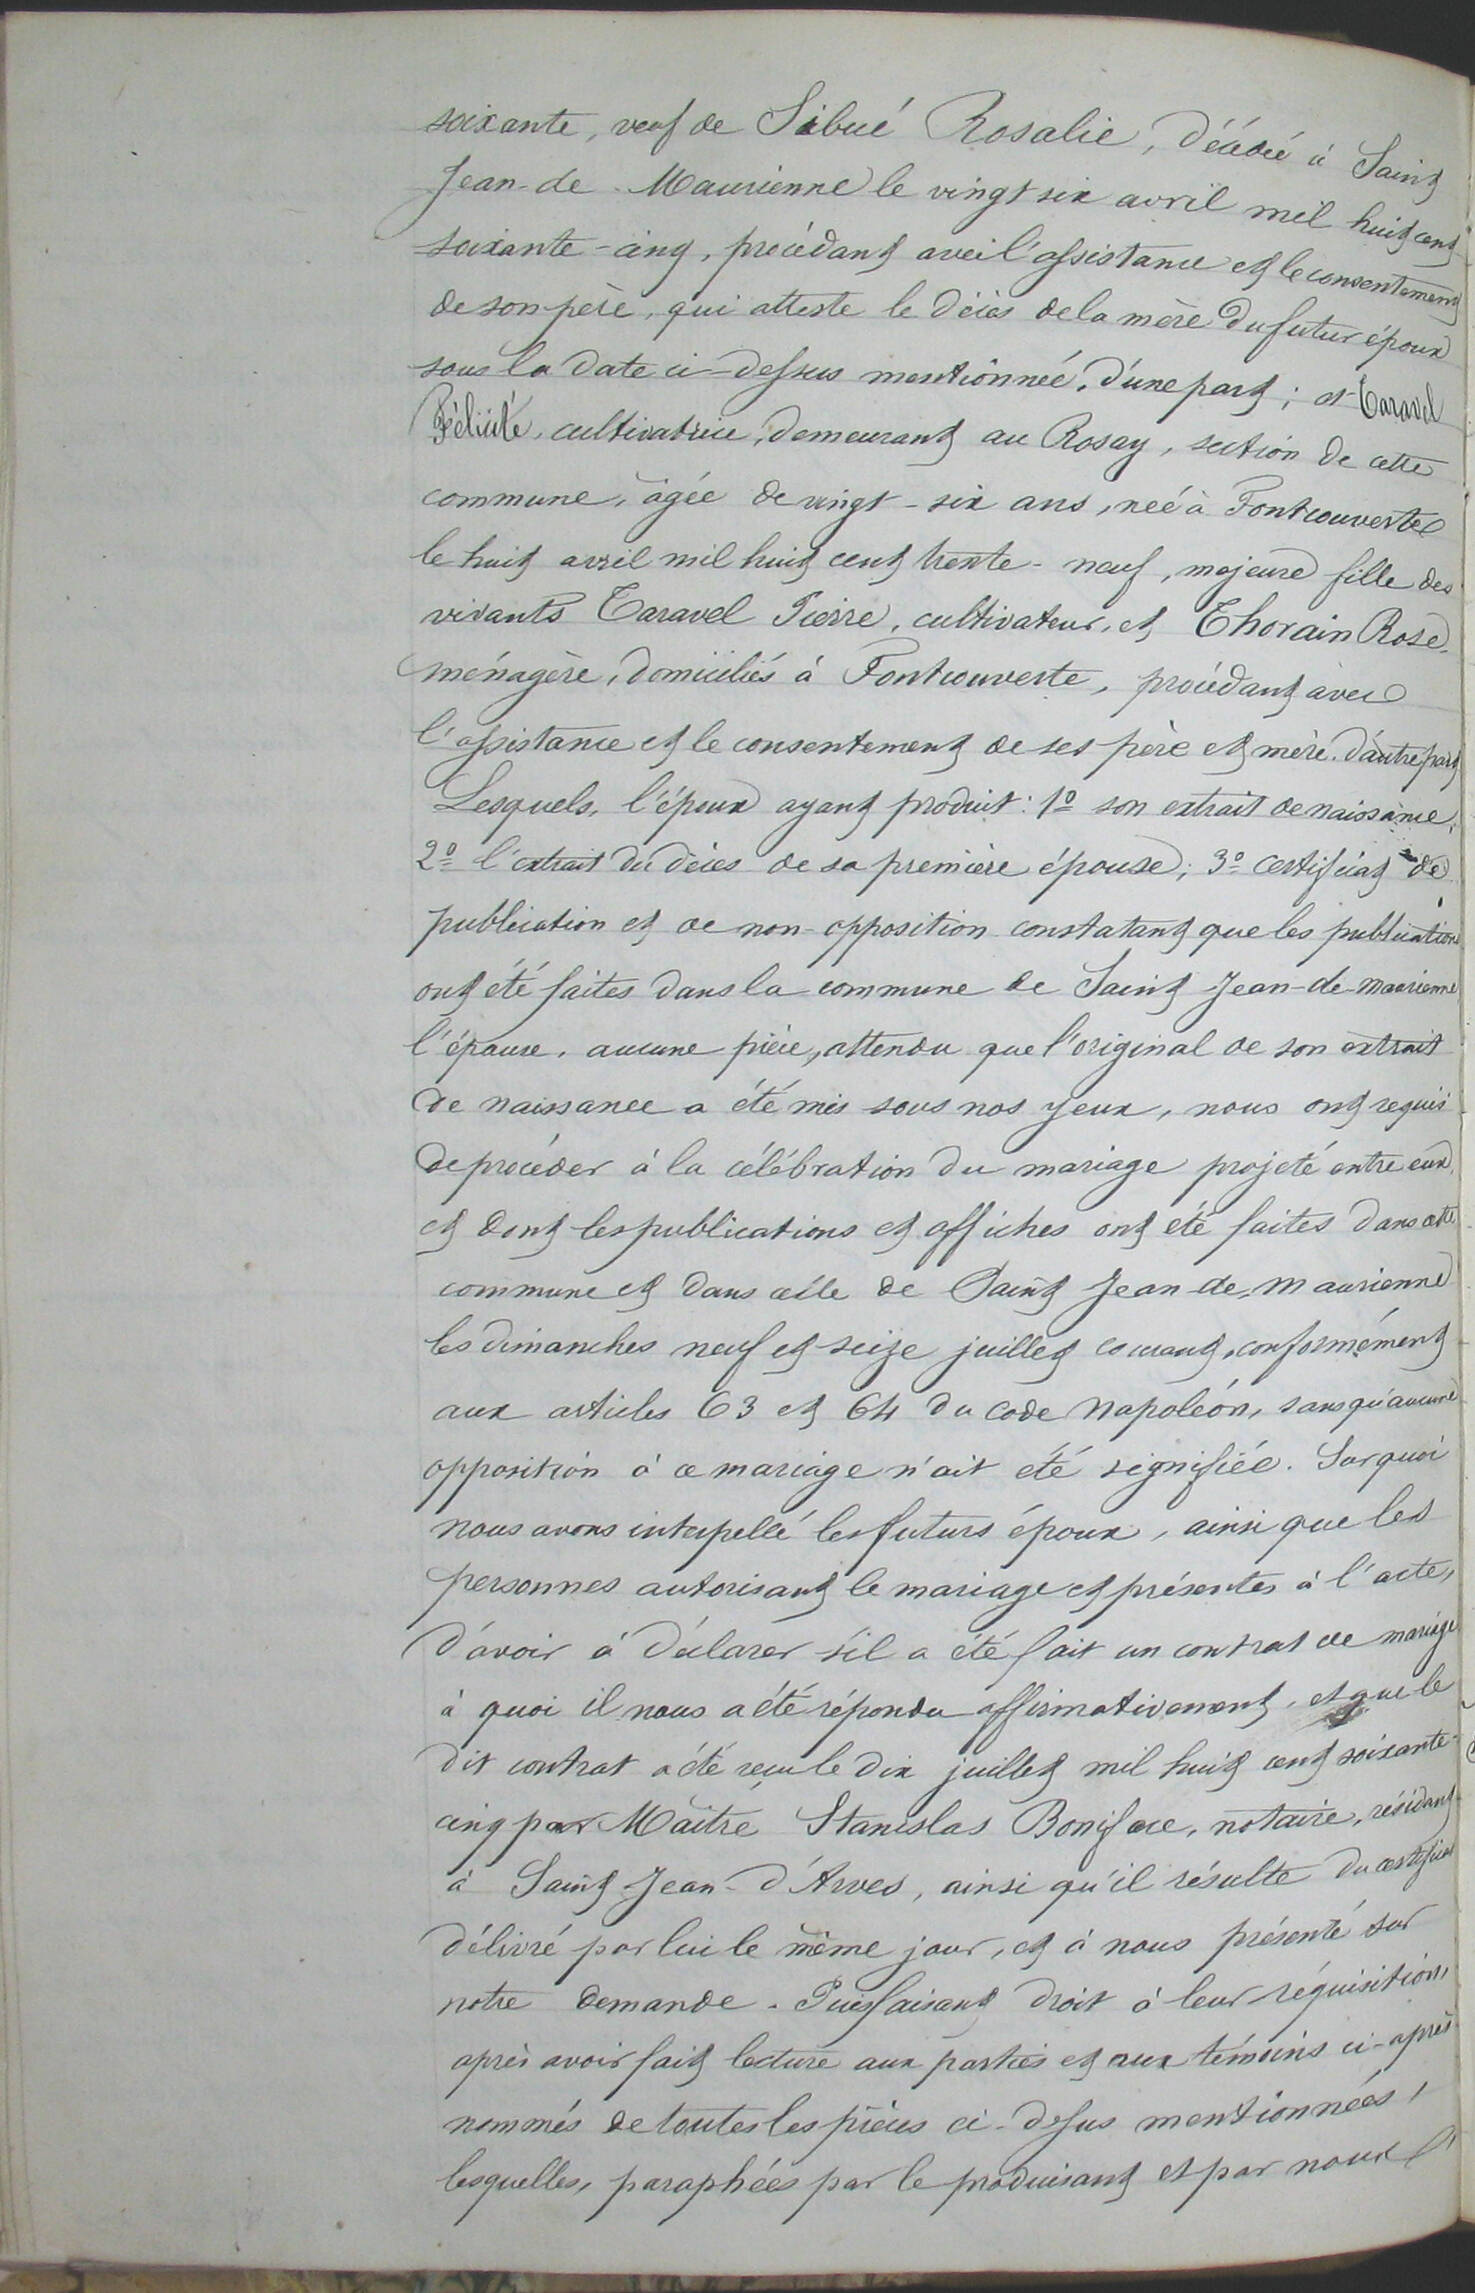 soixante, veuf de Sibué Rosalie, décédée à Saint
Jean-de-Maurienne le vingt six avril mil huit cent
soixante-cinq, procédant avec l'assistance et le consentement
de son père, qui atteste le décès de la mère du futur époux
sous la date ci-dessus mentionnée, d'une part; et Taravel
Félicité, cultivatrice, demeurant au Rosay, section de cette
commune, âgée de vingt-six ans, née à Fontcouverte
le huit avril mil huit cent trente-neuf, majeure fille des
vivants Taravel Pierre, cultivateur, et Thorain Rose
ménagère, domiciliés à Fontcouverte, procédant avec
l'assistance et le consentement de ses père et mère, d'autre part
Lesquels, l'époux ayant produit: 1º son extrait de naissance,
2º l'extrait du décès de sa première épouse; 3º certificat de
publication et de non-opposition constatant que les publications
ont été faites dans la commune de Saint Jean-de-Maurienne
l'épouse, aucune pièce, attendu que l'original de son extrait
de naissance a été mis sous nos yeux, nous ont requis
de procéder à la célébration du mariage projeté entre eux,
et dont les publications et affiches ont été faites dans cette
commune et dans celle de Saint Jean-de-Maurienne
les dimanches neuf et seize juillet courant, conformément
aux articles 63 et 64 du code Napoléon, sans qu'aucune
opposition à ce mariage n'ait été signifiée. Sur quoi
nous avons interpellé les futurs époux, ainsi que les
personnes autorisant le mariage et présentes à l'acte,
d'avoir à déclarer s'il a été fait un contrat de mariage
à quoi il nous a été répondu affirmativement, et que le
dit contrat a été reçu le dix juillet mil huit cent soixante-
cinq par Maître Stanislas Boniface, notaire, résidant
à Saint-Jean-d'Arves, ainsi qu'il résulte du certificat
délivré par lui le même jour, et à nous présenté sur
notre demande. Puis faisant droit à leur réquisition,
après avoir fait lecture aux parties et aux témoins ci-après
nommés de toutes les pièces ci-dessus mentionnées,
lesquelles, paraphées par le produisant et par nous l'